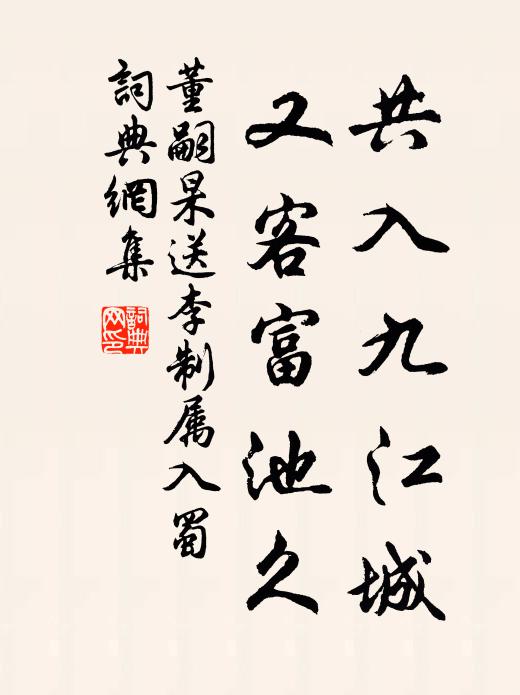 共入九江城
又客富池久
董嗣杲送李制属入蜀
詞典網集
詞典
网印